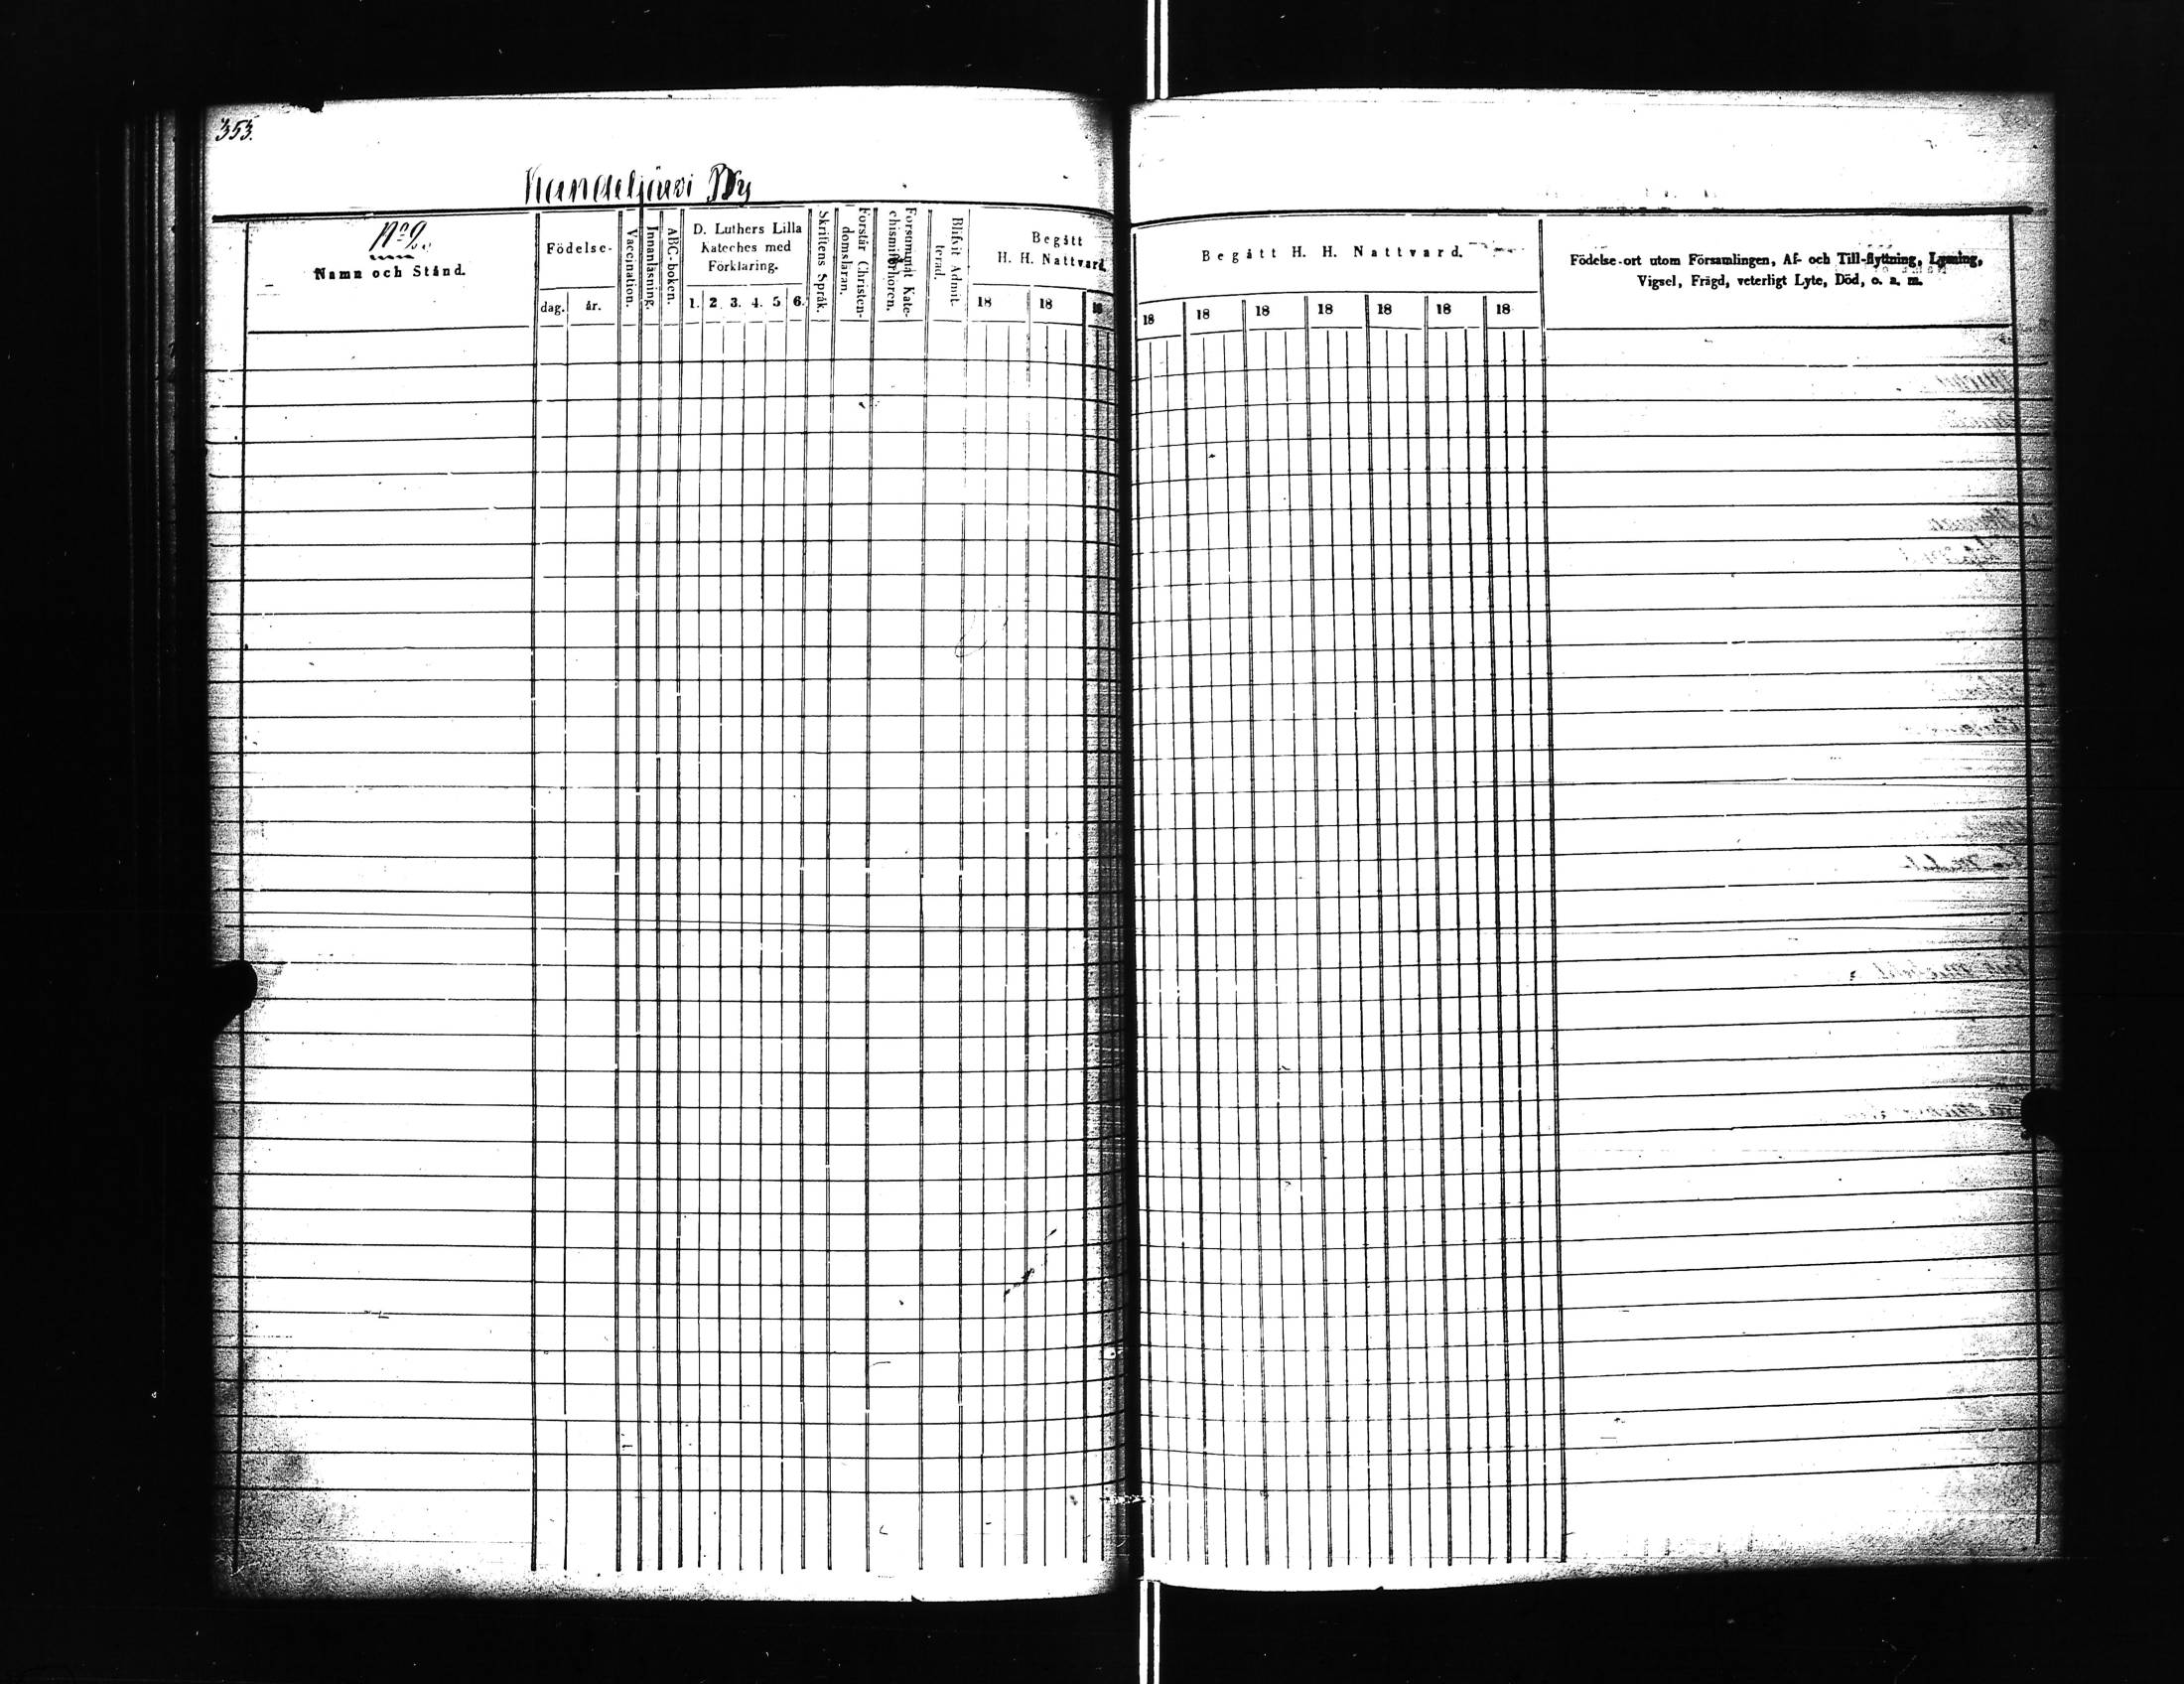 353.
Kandeljärvi By
No 9.
Namn och Stånd.
Födelse-
dag. år.
Vaccination.
Innanläsning.
ABC-boken.
D. Luthers Lilla
Kateches med
Förklaring.
1. 2. 3. 4. 5 6.
Skriftens Språk.
Förstår Christen-
domsläran.
Försummat Kate-
chismiförhören.
Blifvit Admit-
terad.
Begått
H. H. Nattvard.
18 18 18
Begått H. H. Nattvard.
18 18 18 18 18 18 18
Födelse-ort utom Församlingen, Af- och Till-flyttning, Lysning,
Vigsel, Frägd, veterligt Lyte, Död, o. a. m.